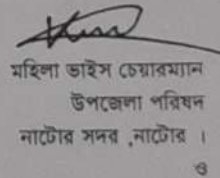 মহিলা ভাইস চেয়ারম্যান
উপজেলা পরিষদ
নাটোর সদর ,নাটোর ।
ও